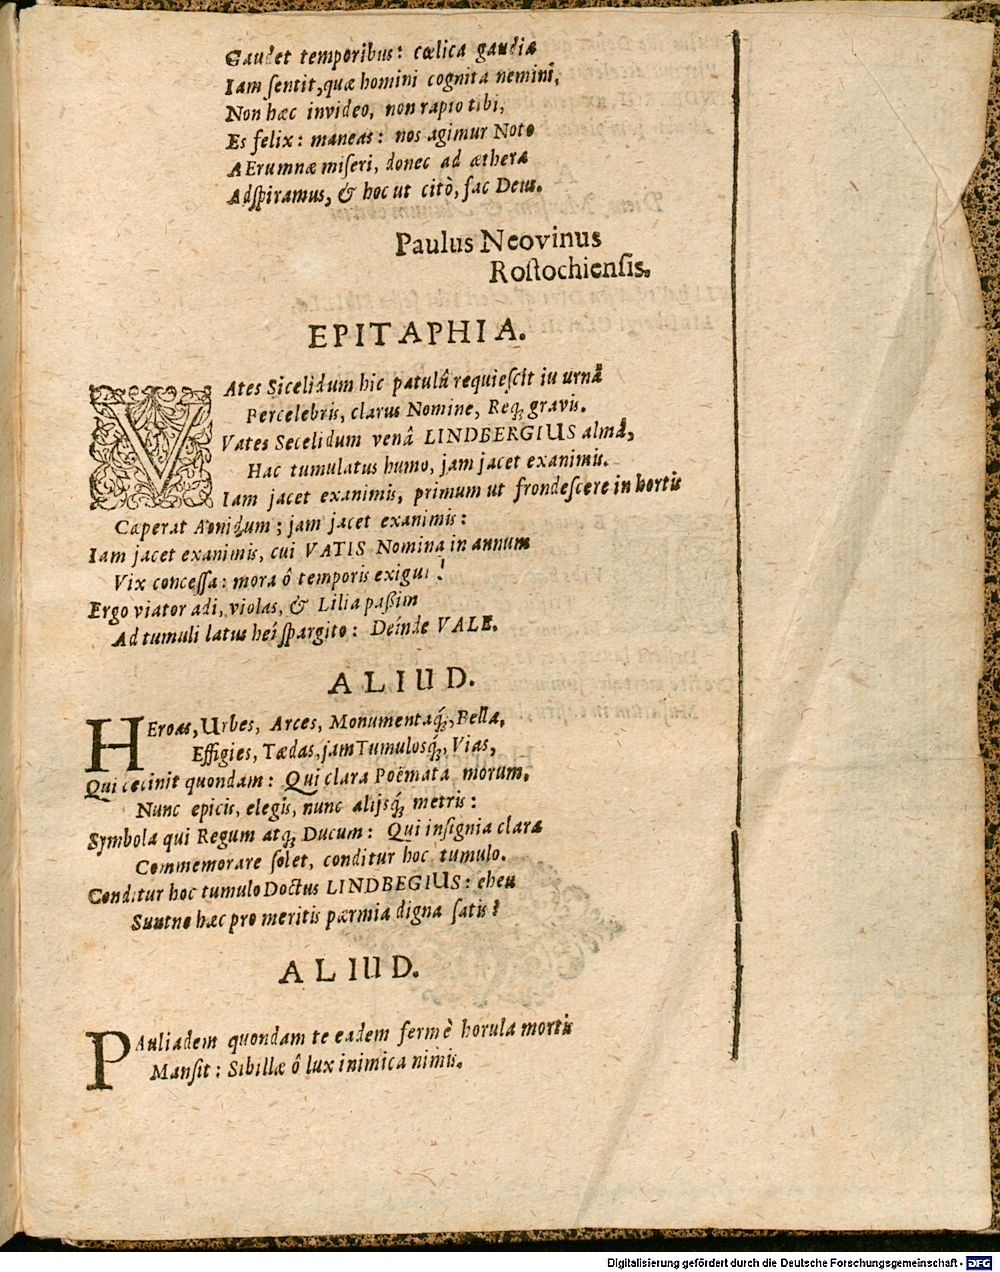 Gaudet temporibus: cœlica gaudia
Iam ſentit, quæ homini cognita nemini,
Non hæc invideo, non rapio tibi,
Es felix: maneas: nos agimur Noto
AErumnæ miſeri, donec ad æthera
Adſpiramus, & hoc ut citò, fac Deus.
Paulus Neovinus
Roſtochienſis.
EPITAPHIA.
VAtes Sicelidum hic patulâ requieſcit iu urnâ
Percelebris, clarus Nomine, Req́; gravis.
Vates Secelidum venâ LINDBERGIUS almâ,
Hac tumulatus humo, jam jacet exanimis.
Iam jacet exanimis, primum ut frondeſcere in hortis
Cœperat Aonidum; jam jacet exanimis:
Iam jacet exanimis, cui VATIS Nomina in annum
Vix conceſſa: mora ô temporis exigui!
Ergo viator adi, violas, & Lilia paßim
Ad tumuli latus heí ſpargito: Deínde VALE.
ALIUD.
HEroas, Urbes, Arces, Monumentaq́;, Bella,
Effigies, Tædas, jam Tumulosq́;, Vias,
Qui cecinit quondam: Qui clara Poëmata morum,
Nunc epicis, elegis, nunc alijsq́; metris:
Symbola qui Regum atq; Ducum: Qui inſignia clara
Commemorare ſolet, conditur hoc tumulo.
Conditur hoc tumulo Doctus LINDBEGIUS: eheu
Suntne hæc pro meritis pærmia digna ſatis?
ALIUD.
PAuliadem quondam te eadem fermè horula mortis
Manſit: Sibillæ ô lux inimica nimis.
Digitalisierung gefördert durch die Deutsche Forschungsgemeinschaft - DFG